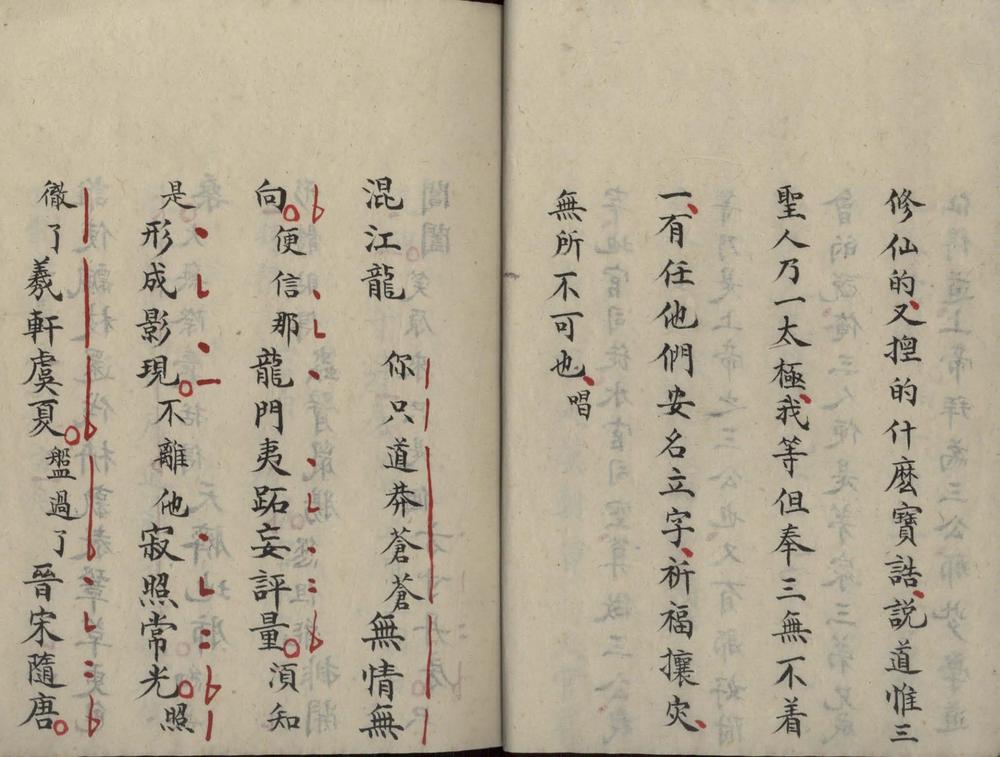 修仙的又揑的什麽寶誥說道惟三
聖人乃一太極我等但奉三無不着
一有任他們安名立字祈福攘灾
無所不可也唱
混江龍 你只道莽蒼蒼無情無
向便信那龍門夷跖妄評量湏知
是形成影現不離他寂照常光照
徹了羲軒虞夏盤過了晉宋隨唐